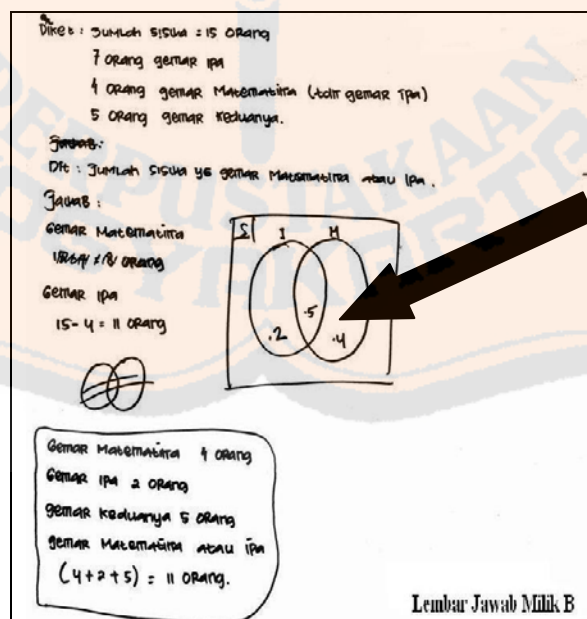 Diket : Jumlah siswa = 15 orang
7 orang gemar ipa
4 orang gemar Matematika (tdk gemar ipa)
5 orang gemar keduanya.
Jawab:
Dit : Jumlah siswa yg gemar Matematika atau IPA.
Jawab :
Gemar Matematika
orang
Gemar ipa
15 - 4 = 11 orang
S I M
.5
.2 .4
Gemar Matematika 4 orang
Gemar ipa 2 orang
gemar keduanya 5 orang
gemar Matematika atau ipa
(4+2+5) = 11 orang.
Lembar Jawab Milik B